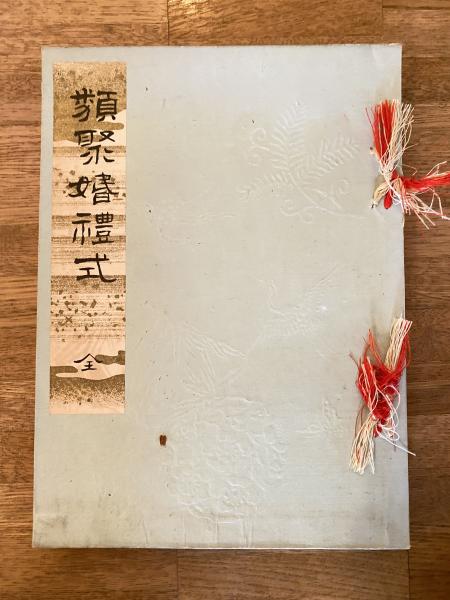 類聚婚禮式
全